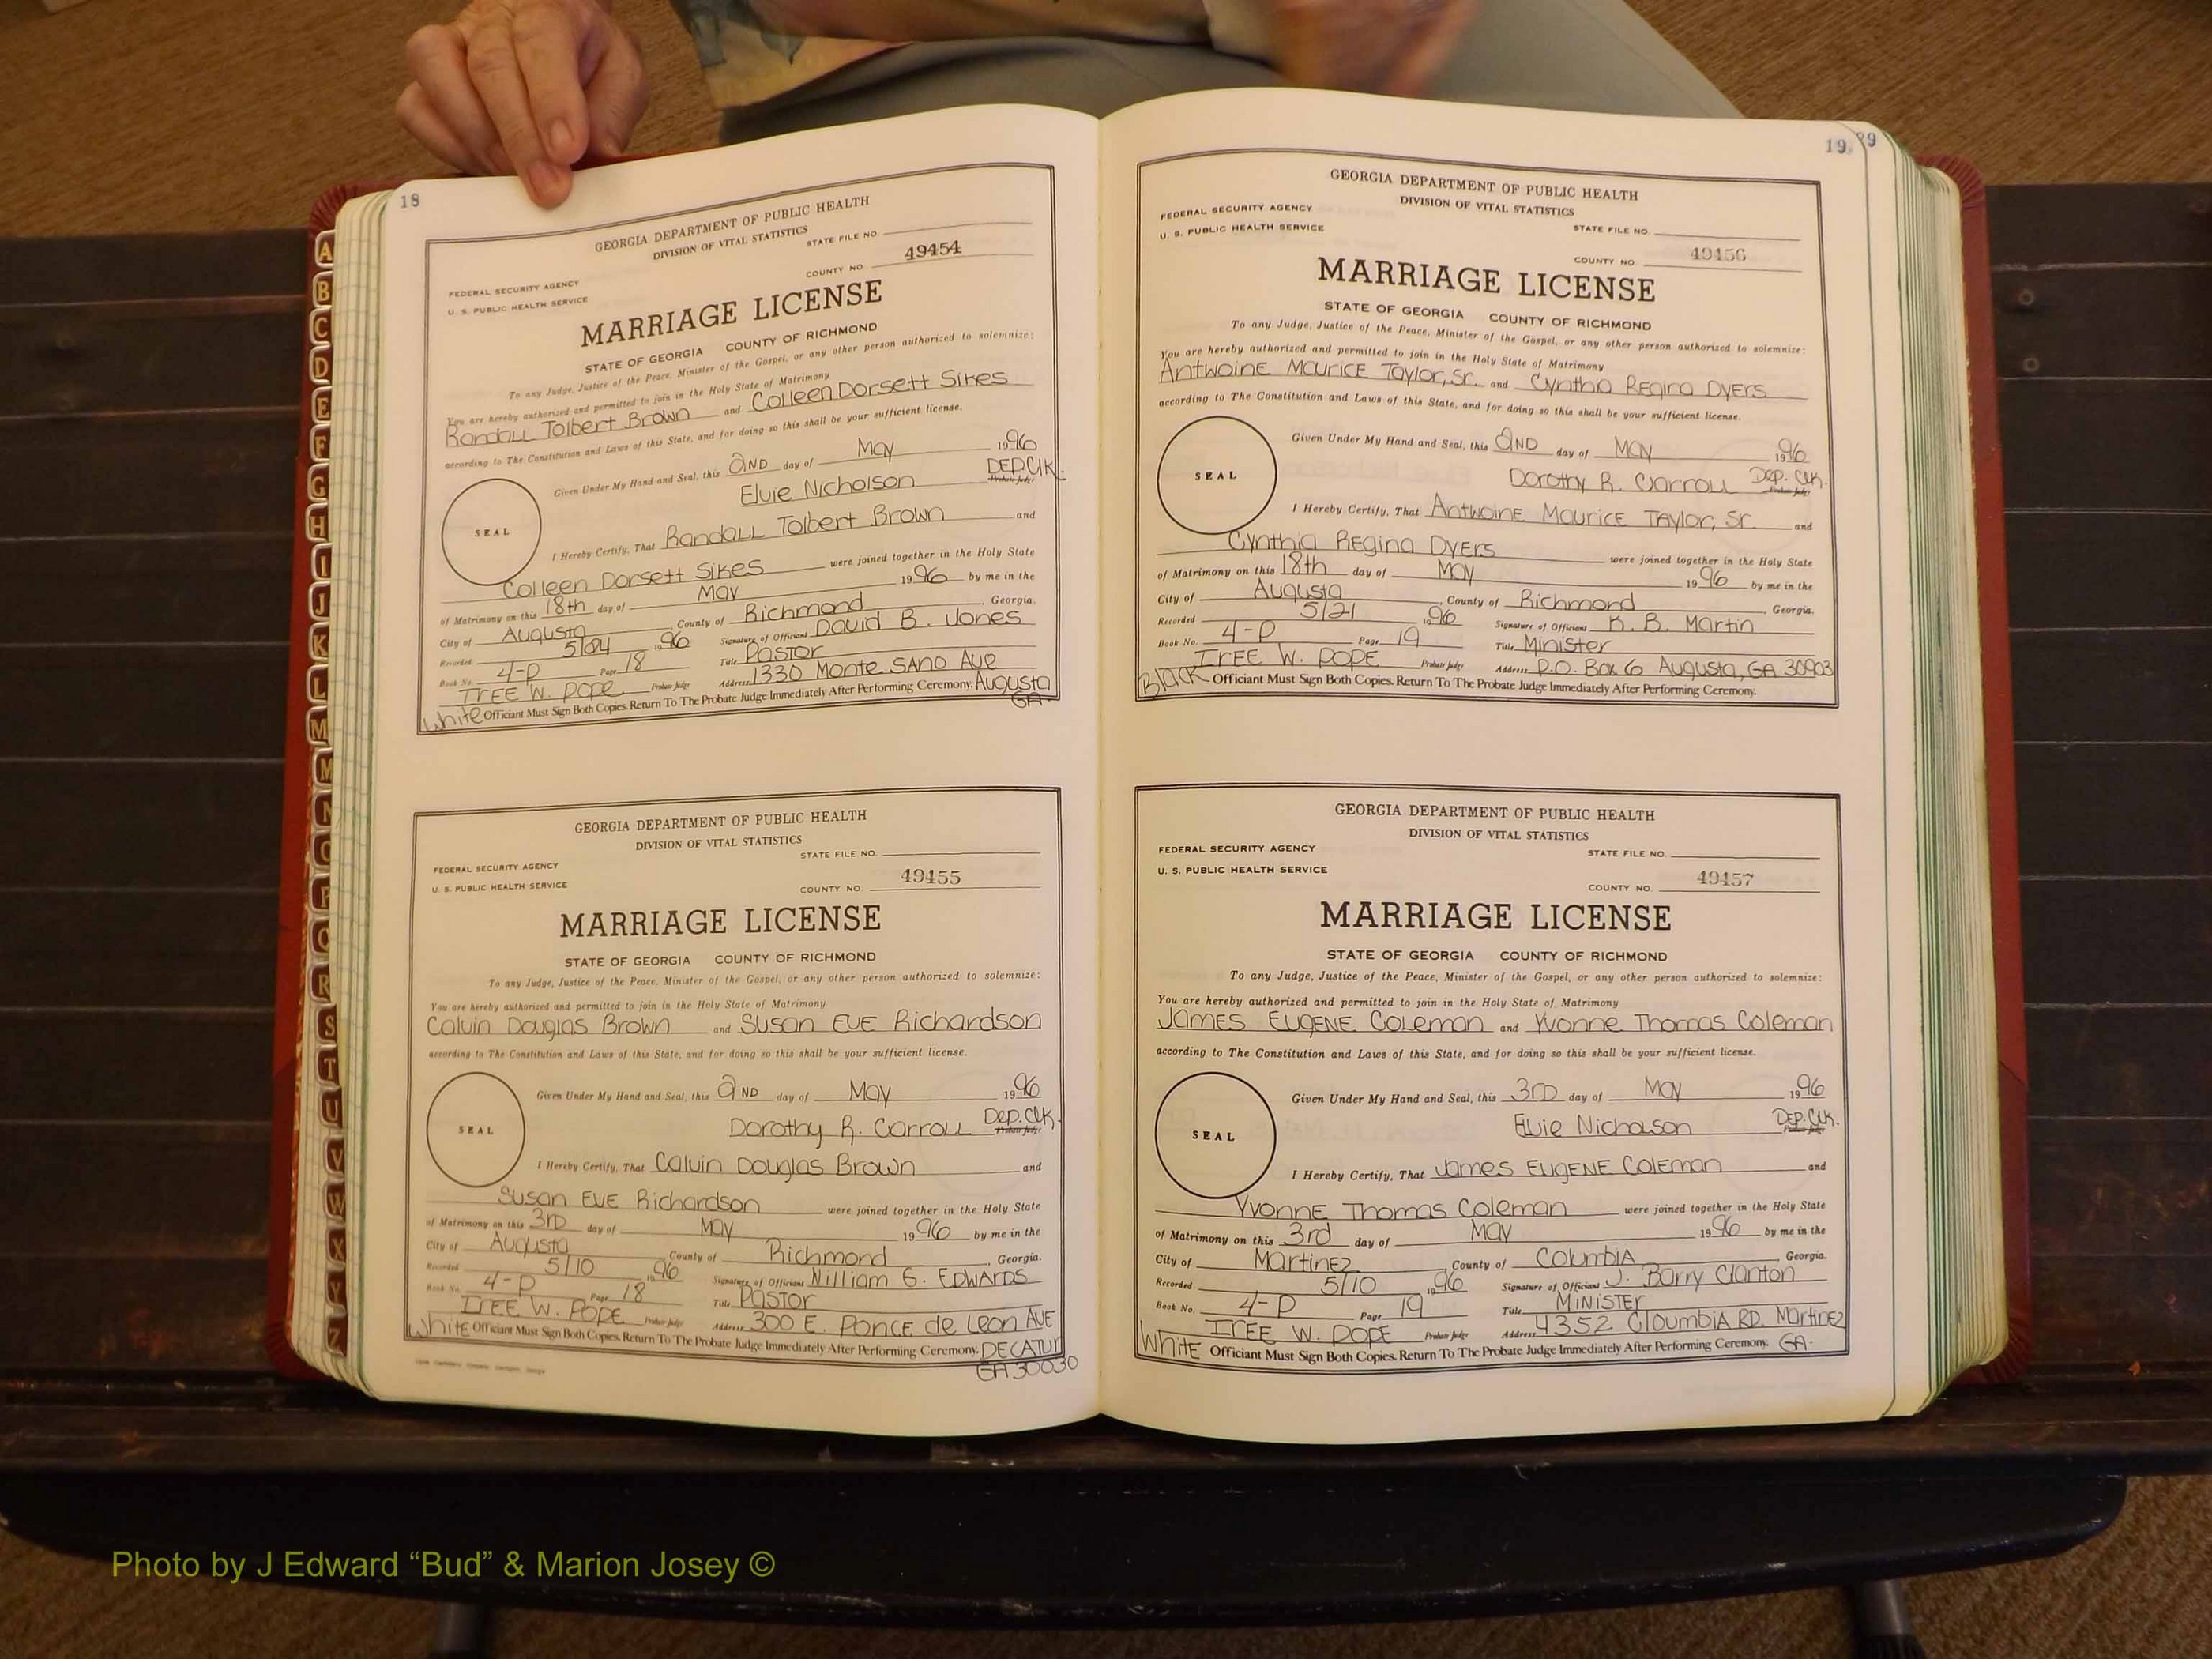 18
GEORGIA DEPARTMENT OF PUBLIC HEALTH
DIVISION OF VITAL STATISTICS
STATE FILE NO.
FEDERAL SECURITY AGENCY
U. S. PUBLIC HEALTH SERVICE
COUNTY NO. 49454
MARRIAGE LICENSE
STATE OF GEORGIA COUNTY OF RICHMOND
To any Judge, Justice of the Peace, Minister of the Gospel, or any other person authorized to solemnize:
You are hereby authorized and permitted to join in the Holy State of Matrimony
Randall Tolbert Brown and Colleen Dorsett Sikes
according to The Constitution and Laws of this State, and for doing so this shall be your sufficient license.
Given Under My Hand and Seal, this 2ND day of May 1996
SEAL
Elvie Nicholson DEP. Clk.
Probate Judge
I Hereby Certify, That Randall Tolbert Brown and
Colleen Dorsett Sikes were joined together in the Holy State
of Matrimony on this 18th day of May 1996 by me in the
City of Augusta County of Richmond, Georgia.
Recorded 5/24 1996 Signature of Officiant David B. Jones
Book No. 4-P Page 18 Title Pastor
IREE W. POPE Probate Judge Address 1330 Monte SANO Ave
White Officiant Must Sign Both Copies. Return To The Probate Judge Immediately After Performing Ceremony. Augusta
GA.
GEORGIA DEPARTMENT OF PUBLIC HEALTH
DIVISION OF VITAL STATISTICS
STATE FILE NO.
FEDERAL SECURITY AGENCY
U. S. PUBLIC HEALTH SERVICE
COUNTY NO. 49455
MARRIAGE LICENSE
STATE OF GEORGIA COUNTY OF RICHMOND
To any Judge, Justice of the Peace, Minister of the Gospel, or any other person authorized to solemnize:
You are hereby authorized and permitted to join in the Holy State of Matrimony
Calvin Douglas Brown and Susan EVE Richardson
according to The Constitution and Laws of this State, and for doing so this shall be your sufficient license.
Given Under My Hand and Seal, this 2ND day of May 1996
SEAL
Dorothy R. Carroll Dep. Clk.
Probate Judge
I Hereby Certify, That Calvin Douglas Brown and
Susan EVE Richardson were joined together in the Holy State
of Matrimony on this 3rD day of May 1996 by me in the
City of Augusta County of Richmond, Georgia.
Recorded 5/10 1996 Signature of Officiant William G. EDWARDS
Book No. 4-P Page 18 Title Pastor
IREE W. POPE Probate Judge Address 300 E. Ponce de Leon AVE
White Officiant Must Sign Both Copies. Return To The Probate Judge Immediately After Performing Ceremony. DECATUR
GA 30030
19
89
GEORGIA DEPARTMENT OF PUBLIC HEALTH
DIVISION OF VITAL STATISTICS
FEDERAL SECURITY AGENCY
U. S. PUBLIC HEALTH SERVICE
STATE FILE NO.
COUNTY NO 49456
MARRIAGE LICENSE
STATE OF GEORGIA COUNTY OF RICHMOND
To any Judge, Justice of the Peace, Minister of the Gospel, or any other person authorized to solemnize:
You are hereby authorized and permitted to join in the Holy State of Matrimony
Antwoine Maurice Taylor, Sr. and Cynthia Regina Dyers
according to The Constitution and Laws of this State, and for doing so this shall be your sufficient license.
Given Under My Hand and Seal, this 2ND day of May 1996
SEAL
Dorothy R. Carroll Dep. Clk.
Probate Judge
I Hereby Certify, That Antwoine Maurice Taylor, Sr. and
Cynthia Regina Dyers were joined together in the Holy State
of Matrimony on this 18th day of May 1996 by me in the
City of Augusta, County of Richmond, Georgia.
Recorded 5/21 1996 Signature of Officiant K. B. Martin
Book No. 4-P Page 19 Title Minister
IREE W. POPE Probate Judge Address P.O. Box 6 Augusta, GA 30903
Black Officiant Must Sign Both Copies. Return To The Probate Judge Immediately After Performing Ceremony.
GEORGIA DEPARTMENT OF PUBLIC HEALTH
DIVISION OF VITAL STATISTICS
FEDERAL SECURITY AGENCY
STATE FILE NO.
U. S. PUBLIC HEALTH SERVICE
COUNTY NO. 49457
MARRIAGE LICENSE
STATE OF GEORGIA COUNTY OF RICHMOND
To any Judge, Justice of the Peace, Minister of the Gospel, or any other person authorized to solemnize:
You are hereby authorized and permitted to join in the Holy State of Matrimony
James EUGENE Coleman and Yvonne Thomas Coleman
according to The Constitution and Laws of this State, and for doing so this shall be your sufficient license.
Given Under My Hand and Seal, this 3RD day of May 1996
SEAL
Elvie Nicholson DEP. Clk.
Probate Judge
I Hereby Certify, That James EUGENE Coleman and
Yvonne Thomas Coleman were joined together in the Holy State
of Matrimony on this 3rd day of May 1996 by me in the
City of Martinez, County of Columbia Georgia.
Recorded 5/10 1996 Signature of Officiant J. Barry Clanton
Book No. 4-P Page 19 Title MINISTEr
IREE W. POPE Probate Judge Address 4352 CloumbiA RD. Martinez
White Officiant Must Sign Both Copies. Return To The Probate Judge Immediately After Performing Ceremony. GA.
A
B
C
D
E
F
G
H
I
J
K
L
M
M
N
O
P
Q
R
S
T
U
V
W
X
Y
Z
Photo by J Edward “Bud” & Marion Josey ©